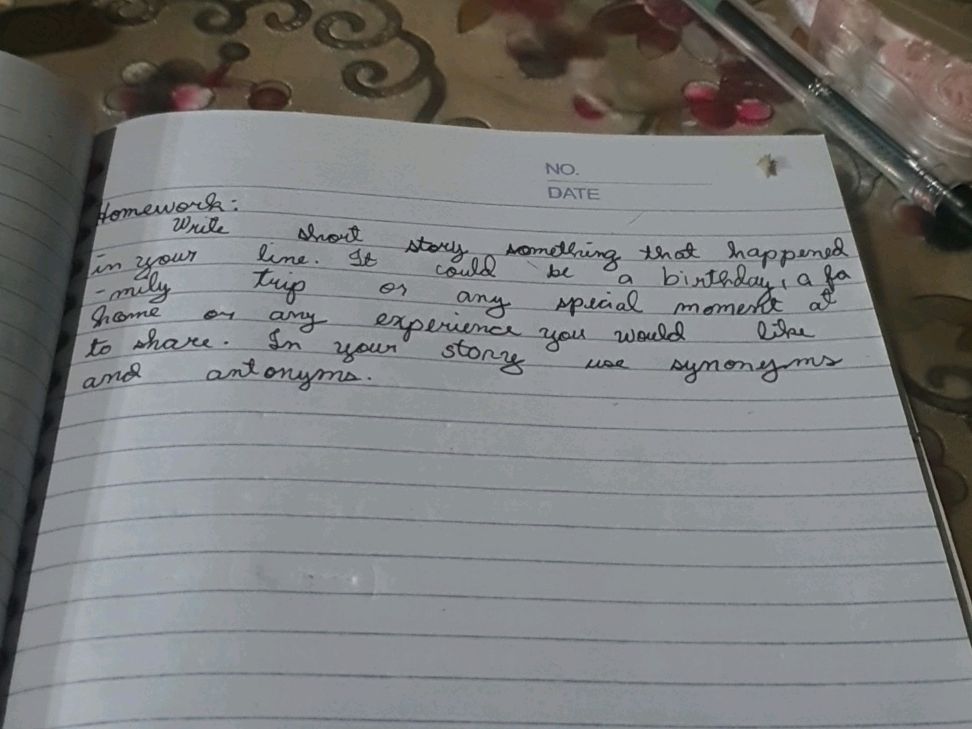 NO.
DATE
Homework:
Write short story something that happened
in your line. It could be a birthday, a fa
-mily trip or any special moment at
home or any experience you would like
to share. In your story use synonyms
and antonyms.